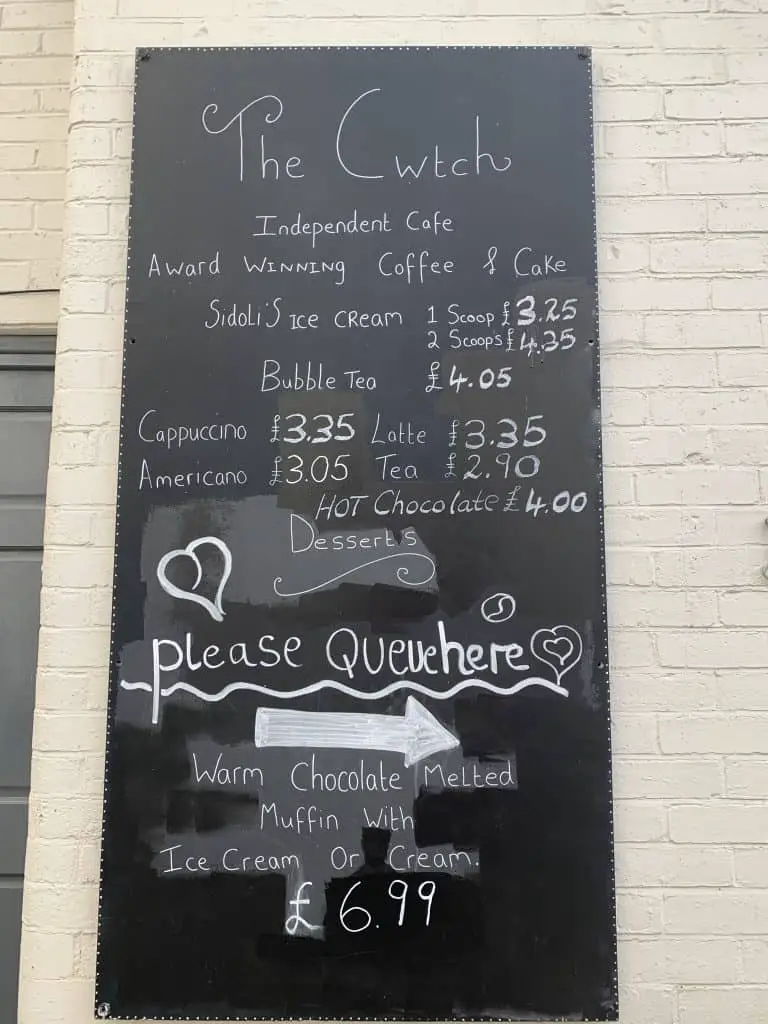 The Cwtch
Independent Cafe
Award WINNING Coffee & Cake
Sidoli's ICE CREAM 1 Scoop £3.25
2 Scoops £4.35
Bubble Tea £4.05
Cappuccino £3.35 Latte £3.35
Americano £3.05 Tea £2.90
HOT Chocolate £4.00
Desserts
please Queue here
Warm Chocolate Melted
Muffin With
Ice Cream Or Cream.
£6.99